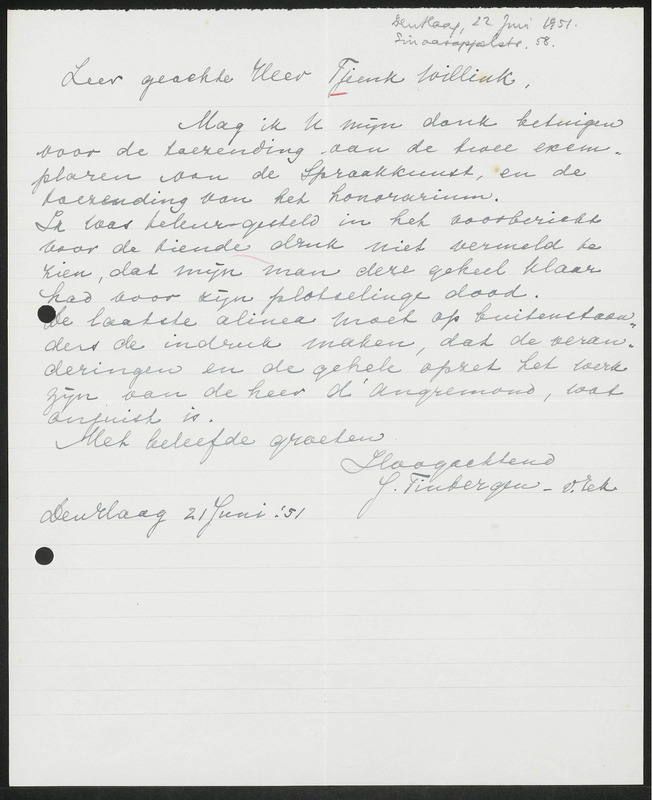 Den Haag, 22 Juni 1951.
Sinaasappelstr. 58.
Zeer geachte Heer Tjeenk Willink,
Mag ik U mijn dank betuigen
voor de toezending van de twee exem-
plaren van de Spraakkunst, en de
toezending van het honorarium.
Ik was teleur-gesteld in het voorbericht
voor de tiende druk niet vermeld te
zien, dat mijn man deze geheel klaar
had voor zijn plotselinge dood.
De laatste alinea moet op buitenstaan-
ders de indruk maken, dat de veran-
deringen en de gehele opzet het werk
zijn van de heer d'Angremond, wat
onjuist is.
Met beleefde groeten
Hoogachtend
G. Tinbergen - v. Eek
Den Haag 21 Juni '51